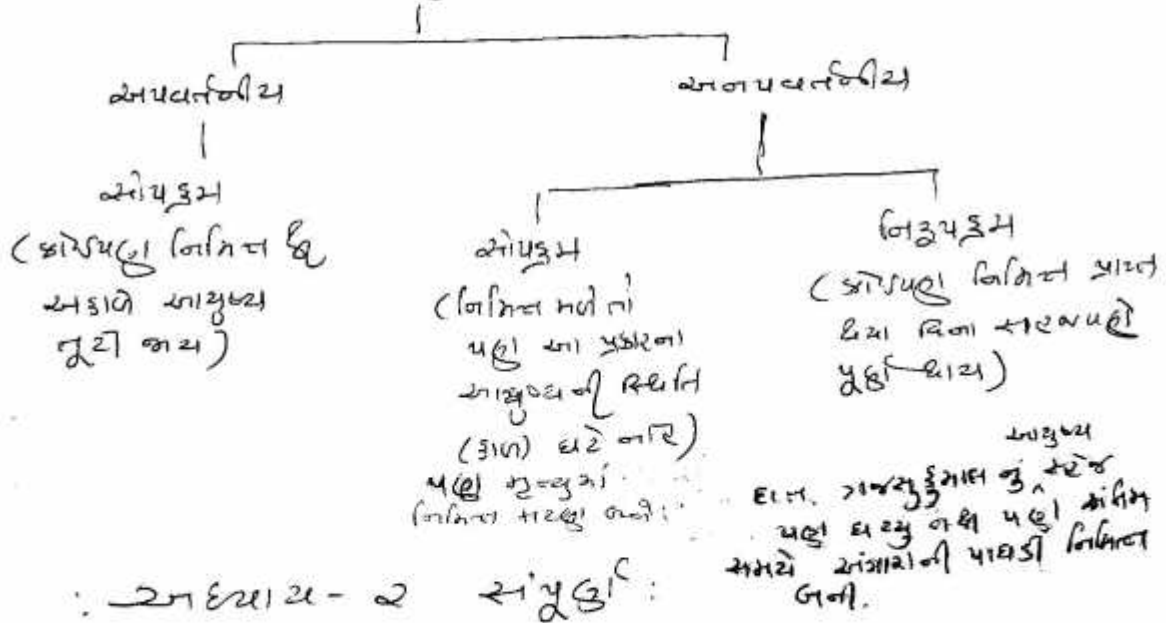 અપવર્તનીય
અનપવર્તનીય
સોપક્રમ
(કોઈપણ નિમિત્ત દ્વ
અકાળે આયુષ્ય
તૂટી જાય)
સોપક્રમ
(નિમિત્ત મળે તો
પણ આ પ્રકારના
આયુષ્યની સ્થિતિ
(કાળ) ઘટે નહિ)
પણ મૃત્યુમાં
નિમિત્ત બને.
નિરૂપક્રમ
(કોઈપણ નિમિત્ત પ્રાપ્ત
થયા વિના સહજપણે
પૂર્ણ થાય)
આયુષ્ય
દા.ત. ગજસુકુમાલ નું સ્હેજ
પણ ઘટ્યુ નથી પણ અંતિમ
સમયે અંગારોની પાઘડી નિમિત્ત
બની.
: અધ્યાય - ૨ સંપૂર્ણ :